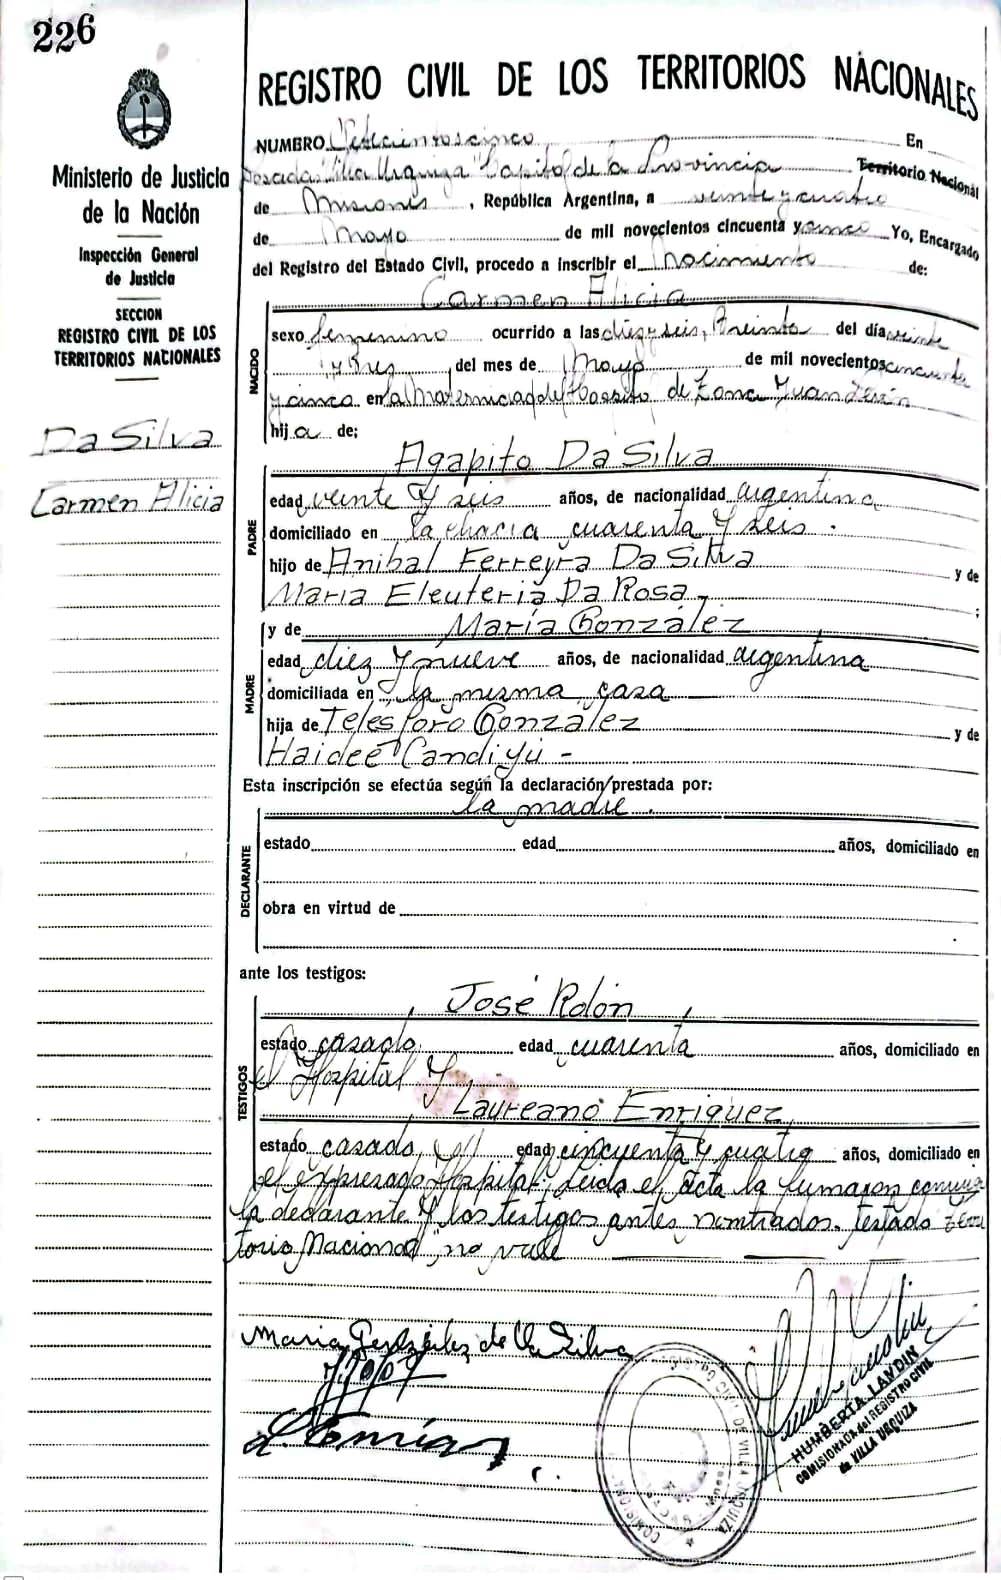 226
Ministerio de Justicia
de la Nación
Inspección General
de Justicia
SECCION
REGISTRO CIVIL DE LOS
TERRITORIOS NACIONALES
Da Silva
Carmen Alicia
REGISTRO CIVIL DE LOS TERRITORIOS NACIONALES
NUMERO Setecientos cinco En
Posadas "Villa Urquiza" Capital de la Provincia Territorio Nacional
de Misiones, República Argentina, a veinte y cuatro
de Mayo de mil novecientos cincuenta y cinco Yo, Encargado
del Registro del Estado Civil, procedo a inscribir el Nacimiento de:
Carmen Alicia
NACIDO
sexo femenino ocurrido a las diez y seis, treinta del día veinte
y tres del mes de Mayo de mil novecientos cincuenta
y cinco en la Maternidad del Hospital de Zona Juan Perón
hija de;
PADRE
Agapito Da Silva
edad veinte y seis años, de nacionalidad argentina
domiciliado en la chacra cuarenta y seis.
hijo de Anibal Ferreyra Da Silva y de
Maria Eleuteria Da Rosa- ;
MADRE
y de María González,
edad diez y nueve años, de nacionalidad argentina
domiciliada en la misma casa
hija de Telesforo González y de
Haideé Candiyú -
Esta inscripción se efectúa según la declaración prestada por:
la madre.
DECLARANTE
estado edad años, domiciliado en
obra en virtud de
ante los testigos:
TESTIGOS
, José Rolón,
estado casado, edad cuarenta años, domiciliado en
el Hospital y
Laureano Enriquez,
estado casado, edad cincuenta y cuatro años, domiciliado en
el expresado Hospital; Leida el acta la firmaron conmigo
la declarante y los testigos antes nombrados. Testado "Terri
torio Nacional", no vale
Maria González de Da Silva
L. Enriquez
REGISTRO CIVIL DE VILLA URQUIZA
HUMBERTA LANDIN
COMISIONADA del REGISTRO CIVIL
de VILLA URQUIZA